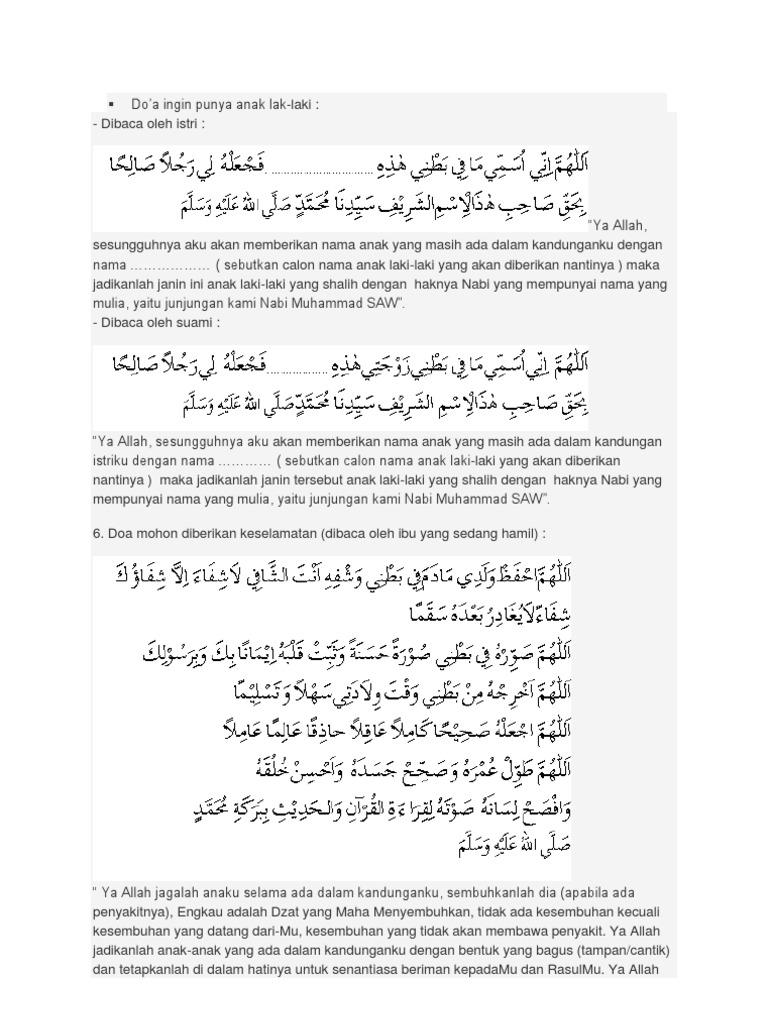 ▪ Do’a ingin punya anak lak-laki :
- Dibaca oleh istri :
اَللّٰهُمَّ اِنِّي اُسَمِّي مَا فِي بَطْنِي هٰذِهِ ................................ فَجْعَلْهُ لِي رَجُلاً صَالِحًا
بِحَقِّ صَاحِبِ هٰذَالْاِسْمِ الشَّرِيْفِ سَيِّدِنَا مُحَمَّدٍ صَلَّى اللهُ عَلَيْهِ وَسَلَّمَ
“Ya Allah,
sesungguhnya aku akan memberikan nama anak yang masih ada dalam kandunganku dengan
nama ……………… ( sebutkan calon nama anak laki-laki yang akan diberikan nantinya ) maka
jadikanlah janin ini anak laki-laki yang shalih dengan haknya Nabi yang mempunyai nama yang
mulia, yaitu junjungan kami Nabi Muhammad SAW”.
- Dibaca oleh suami :
اَللّٰهُمَّ اِنِّي اُسَمِّي مَا فِي بَطْنِي زَوْجَتِي هٰذِهِ ................... فَجْعَلْهُ لِي رَجُلاً صَالِحًا
بِحَقِّ صَاحِبِ هٰذَالْاِسْمِ الشَّرِيْفِ سَيِّدِنَا مُحَمَّدٍ صَلَّى اللهُ عَلَيْهِ وَسَلَّمَ
“Ya Allah, sesungguhnya aku akan memberikan nama anak yang masih ada dalam kandungan
istriku dengan nama ………… ( sebutkan calon nama anak laki-laki yang akan diberikan
nantinya ) maka jadikanlah janin tersebut anak laki-laki yang shalih dengan haknya Nabi yang
mempunyai nama yang mulia, yaitu junjungan kami Nabi Muhammad SAW”.
6. Doa mohon diberikan keselamatan (dibaca oleh ibu yang sedang hamil) :
اَللّٰهُمَّ احْفَظْ وَلَدِي مَادَمَ فِي بَطْنِي وَشْفِهِ اَنْتَ الشَّافِي لَاشِفَاءَ اِلاَّ شِفَاؤُكَ
شِفَاءً لَايُغَادِرُ بَعْدَهُ سَقَمًا
اَللّٰهُمَّ صَوِّرْهُ فِي بَطْنِي صُوْرَةً حَسَنَةً وَثَبِّتْ قَلْبَهُ اِيْمَانًا بِكَ وَبِرَسُوْلِكَ
اَللّٰهُمَّ اَخْرِجْهُ مِنْ بَطْنِي وَقْتَ وِلَادَتِي سَهْلاً وَتَسْلِيْمًا
اَللّٰهُمَّ اجْعَلْهُ صَحِيْحًا كَامِلاً عَاقِلاً حاذِقًا عَالِمًا عَامِلاً
اَللّٰهُمَّ طَوِّلْ عُمْرَهُ وَصَحِّحْ جَسَدَهُ وَاَحْسِنْ خُلُقَهُ
وَافْصَحْ لِسَانَهُ صَوْتَهُ لِقِرَاءَةِ القُرْآنِ وَالحَدِيْثِ بِبَرَكَةِ مُحَمَّدٍ
صَلَّى اللهُ عَلَيْهِ وَسَلَّمَ
“ Ya Allah jagalah anaku selama ada dalam kandunganku, sembuhkanlah dia (apabila ada
penyakitnya), Engkau adalah Dzat yang Maha Menyembuhkan, tidak ada kesembuhan kecuali
kesembuhan yang datang dari-Mu, kesembuhan yang tidak akan membawa penyakit. Ya Allah
jadikanlah anak-anak yang ada dalam kandunganku dengan bentuk yang bagus (tampan/cantik)
dan tetapkanlah di dalam hatinya untuk senantiasa beriman kepadaMu dan RasulMu. Ya Allah